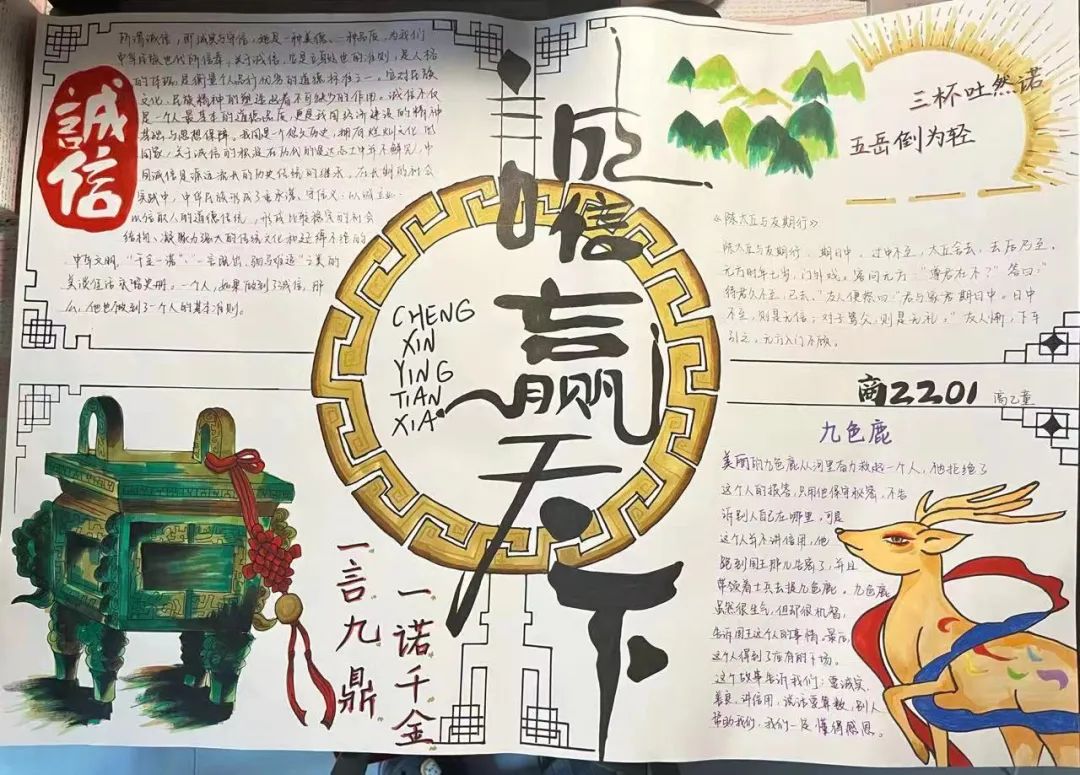 誠信
所谓诚信，即诚实与守信，她是一种美德、一种品质，为我们
中华民族世代所信奉，关于诚信，它是立身处世的准则，是人格
的体现，是衡量个人品行优劣的道德标准之一。它对民族
文化、民族精神的塑造起着不可缺少的作用。诚信不仅
是一个人最基本的道德品质，更是我国经济建设的精神
基础与思想保障。我国是个很久历史，拥有灿烂文化的
国家，关于诚信的
中，中华民族形成了重承诺、守信义
以信取人的道德传统，形成比较稳定的社会
结构、凝聚力强大的传统文化和延绵不绝的
中华文明，“千金一诺”、“一言既出，驷马难追”之美的
美谈佳话永留史册。一个人，如果做到了诚信，那
么，他也做到了一个人的基本准则。
诚信赢天下
CHENG
XIN
YING
TIAN
XIA
三杯吐然诺
五岳倒为轻
《陈太丘与友期行》
陈太丘与友期行，期日中，过中不至，太丘舍去，去后乃至。
元方时年七岁，门外戏。客问元方：“尊君在不？”答曰：“
待君久不至，已去。”友人便怒曰：“君与家君期日中。日中
不至，则是无信；对子骂父，则是无礼。”友人惭，下车
引之，元方入门不顾。
商2201 高乙童
一言九鼎
一诺千金
九色鹿
美丽的九色鹿从河里奋力救起一个人，他拒绝了
这个人的报答，只用他保守秘密，不告
诉别人自己在哪里，可是
这个人并不讲信用，他
跑到国王那儿告密了，并且
带领着士兵去捉九色鹿。九色鹿
虽然很生气，但却很机智，
告诉国王这个人的事情。最后，
这个人得到了应有的下场。
这个故事告诉我们：要诚实、
善良、讲信用，说话要算数，别人
帮助我们，我们一定懂得感恩。